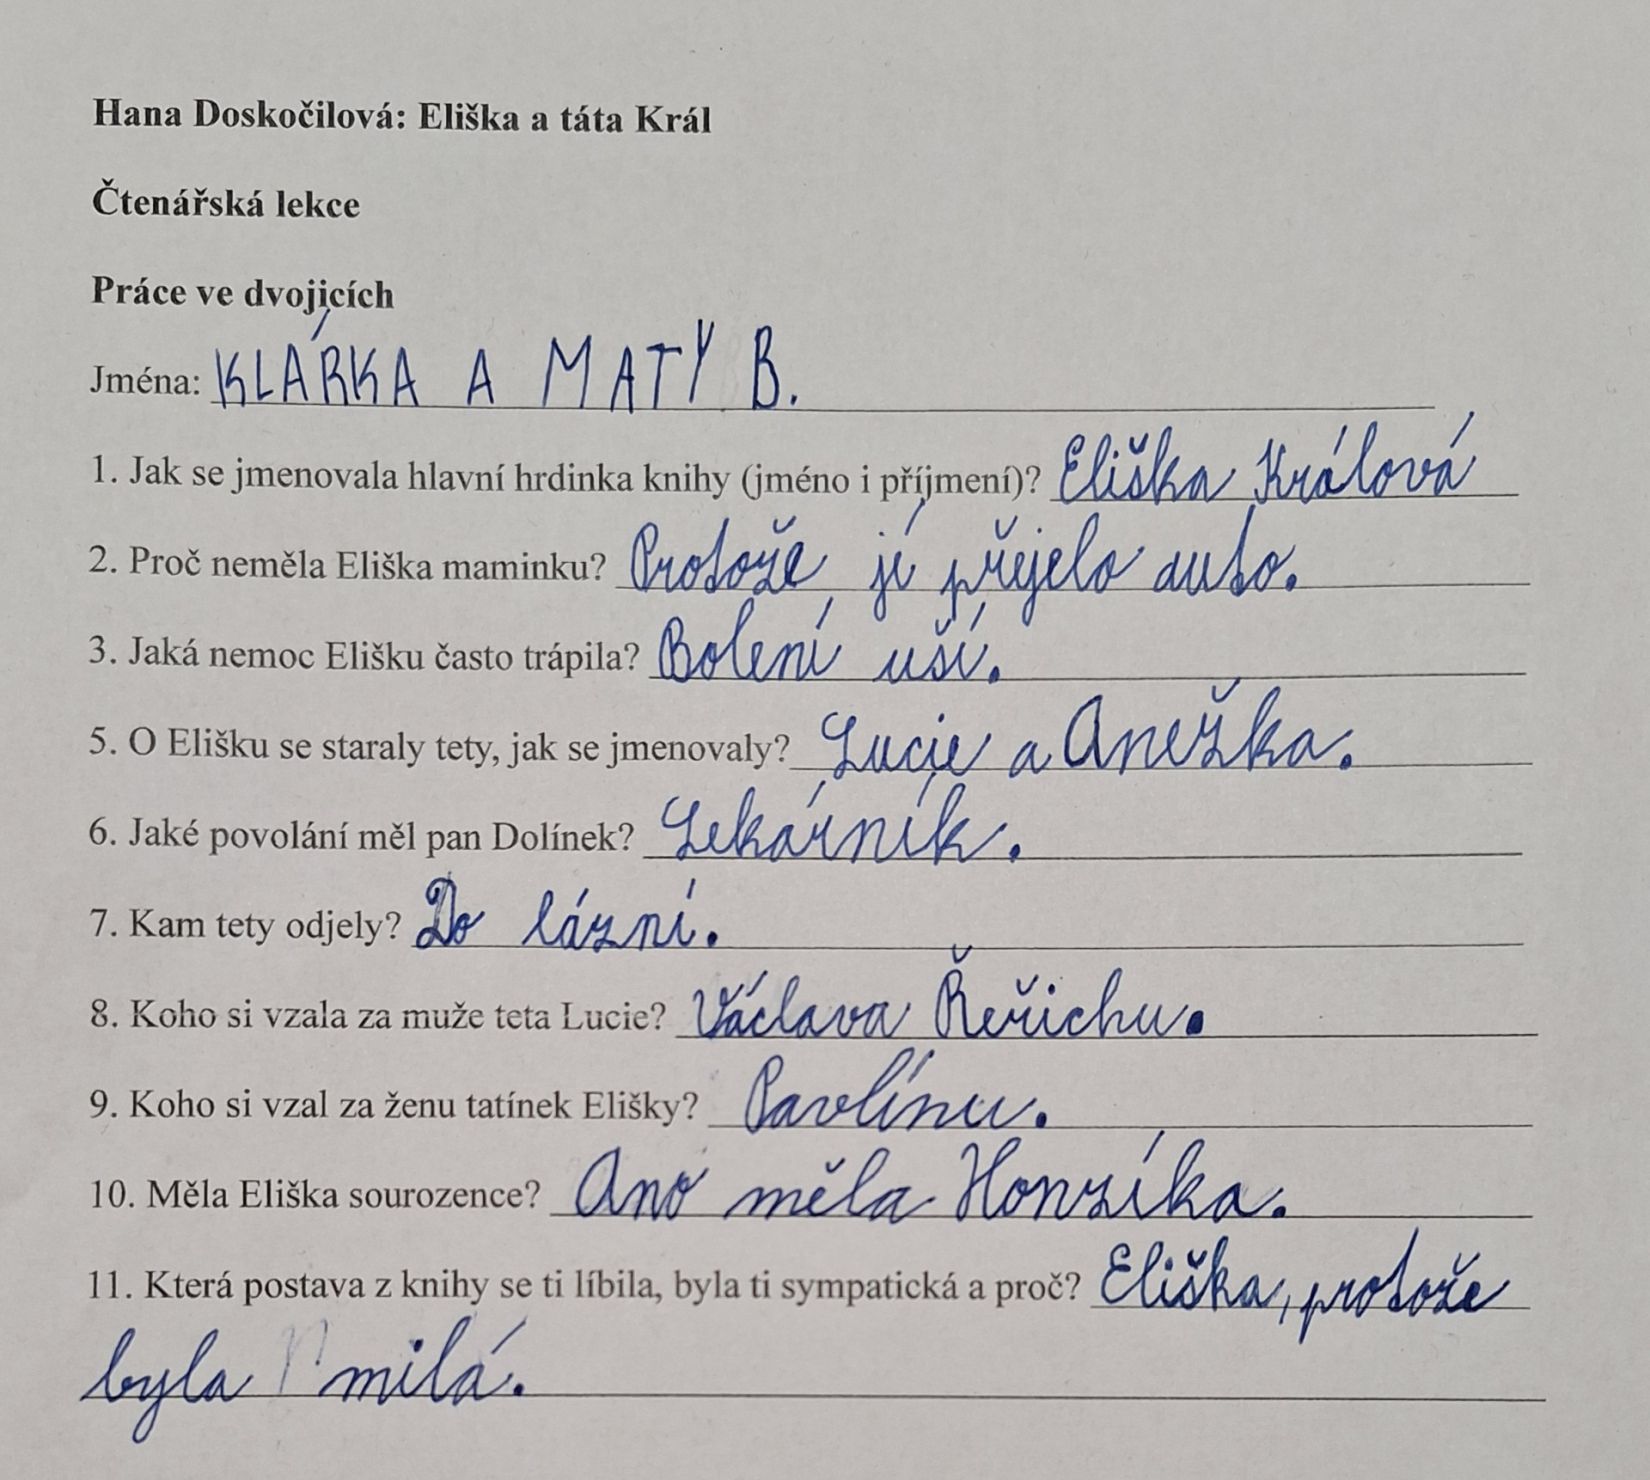 Hana Doskočilová: Eliška a táta Král
Čtenářská lekce
Práce ve dvojicích
Jména: KLÁRKA A MATY B.
1. Jak se jmenovala hlavní hrdinka knihy (jméno i příjmení)? Eliška Králová
2. Proč neměla Eliška maminku? Protože jí přejelo auto.
3. Jaká nemoc Elišku často trápila? Bolení uší.
5. O Elišku se staraly tety, jak se jmenovaly? Lucie a Anežka.
6. Jaké povolání měl pan Dolínek? Lekárník.
7. Kam tety odjely? Do lázní.
8. Koho si vzala za muže teta Lucie? Václava Řeřichu.
9. Koho si vzal za ženu tatínek Elišky? Pavlínu.
10. Měla Eliška sourozence? Ano měla Honzíka.
11. Která postava z knihy se ti líbila, byla ti sympatická a proč? Eliška, protože
byla milá.